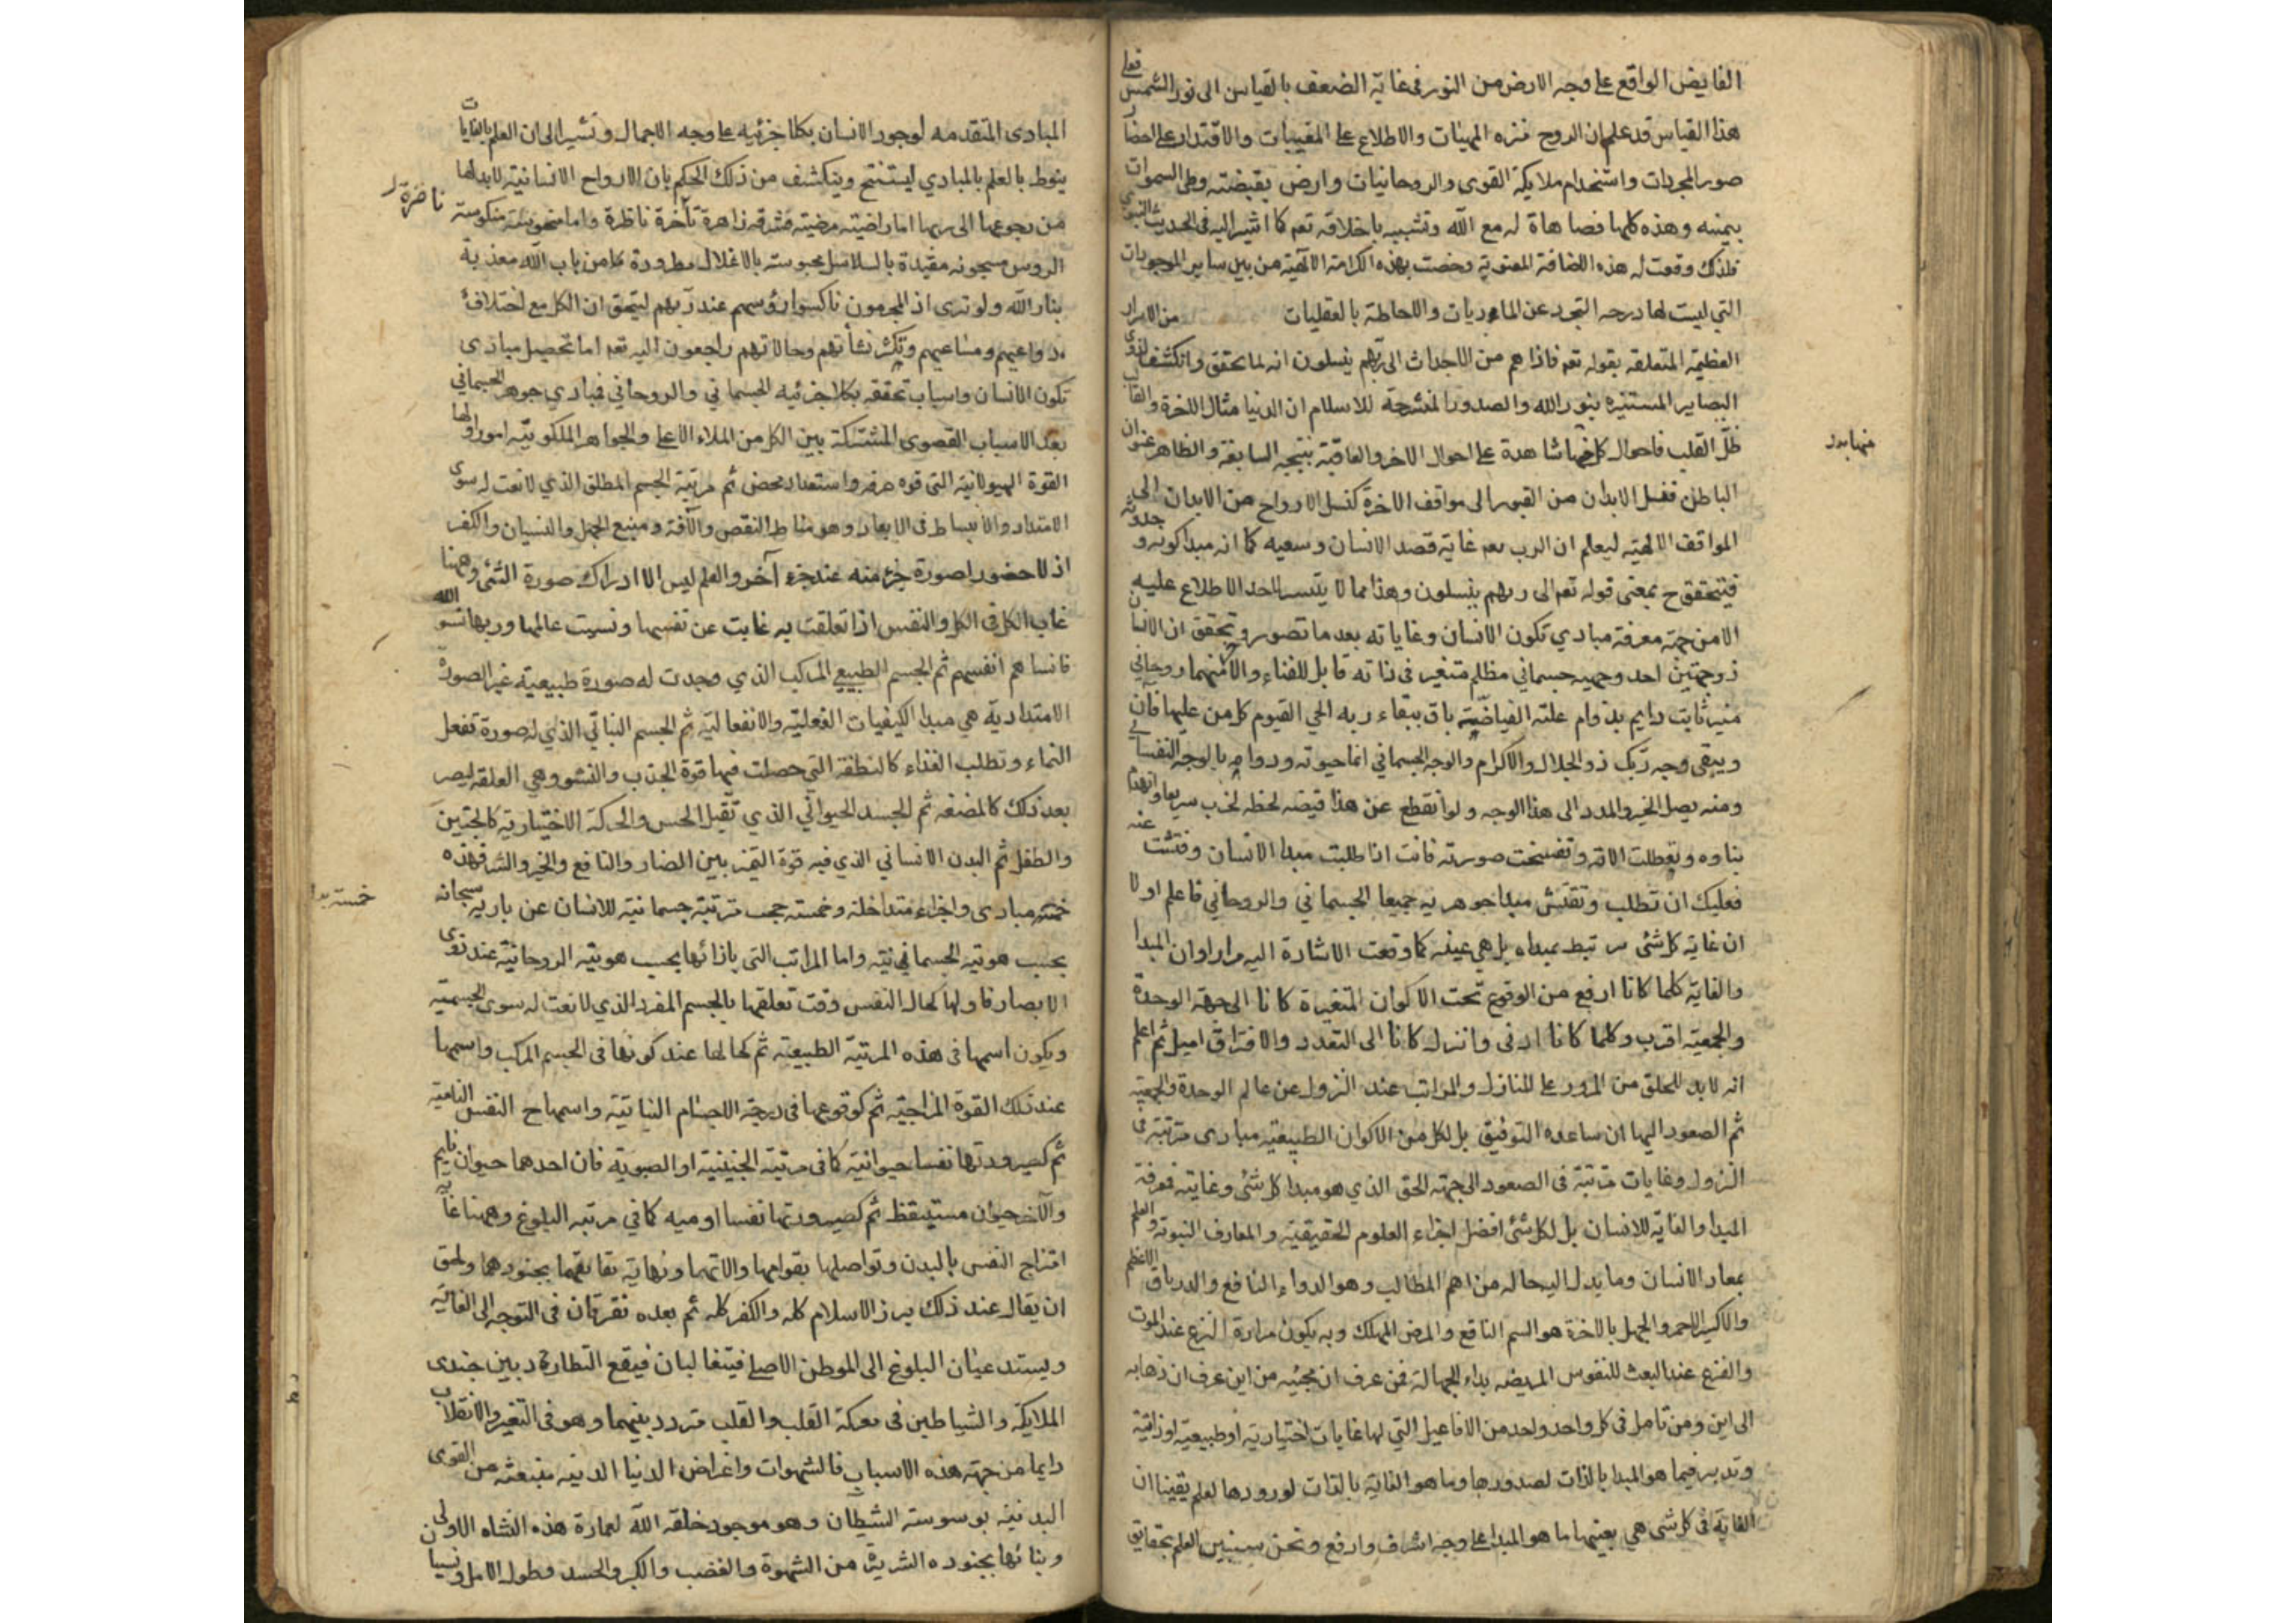 الفايض الواقع على وجه الارض من النور فى غاية الضعف بالقياس الى نور الشمس فعلى
هذا القياس قد علم ان الروح منزه المهيئات والاطلاع على المغيبات والاقتدار على احضار
صور المجردات واستخدام ملايكة القوى والروحانيات وارض بقبضته وطى السموات
بيمينه وهذه كلها فصاهاة له مع الله وتشبيه باخلاقه تعم كما اشير اليه فى الحديث النبوى
فلذلك وقعت له هذه الاضافة المعنوية وخصت بهذه الكرامة الآلهية من بين ساير الموجودات
التي ليست لها درجه التجرد عن الماديات والاحاطة بالعقليات من الاسرار
العظيمة المتعلقة بقوله تعم فاذا هم من الاجداث الى ربهم ينسلون انه لما تحقق وانكشف لذوى
البصاير المستنيره بنور الله والصدور المنشرحة للاسلام ان الدنيا مثال الاخرة والقالب
ظل القلب فاحوال كل منها شاهدة على احوال الاخر والعاقبة نتيجه السابقة والظاهر عنوان
الباطن فنسل الابدان من القبور الى مواقف الاخرة كنسل الارواح من الابدان الى
المواقف الالهية ليعلم ان الرب تعم غاية قصد الانسان وسعيه كما انه مبدا كونه وحدوثه
فيتحقق ح بمعنى قوله تعم الى ربهم ينسلون وهذا مما لا يتيسر لاحد الاطلاع عليه
الا من جهة معرفة مبادي تكون الانسان وغاياته بعد ما تصور وتحقق ان الانسان
ذو جهتين احد وجهيه جسماني مظلم متغير فى ذاته قابل للفناء والاخر منهما روحاني
منير ثابت دايم بدوام علته الفياضة باق ببقاء ربه الحي القيوم كل من عليها فان
ويبقى وجه ربك ذو الجلال والاكرام والوجه الجسماني انما حيوته ودوامه بالوجه النفساني
ومنه يصل الخير والمدد الى هذا الوجه ولو انقطع عن هذا فيضه لحظه لخرب سريعا وانهدم
بناوه وتعطلت الاته وتفسخت صورته فانت اذا طلبت مبدا الانسان وفتشت عنه
فعليك ان تطلب وتفتش مبدا جوهريه جميعا الجسماني والروحاني فاعلم اولا
ان غاية كل شئ مرتبط بمبداه بل هي عينه كما وقعت الاشارة اليه مرارا وان المبدا
والغاية كلما كانا ارفع من الوقوع تحت الاكوان المتغيرة كانا الى جهة الوحدة
والجمعية اقرب وكلما كانا ادنى وانزل كانا الى التعدد والافتراق اميل ثم اعلم
انه لابد للخلق من المرور على المنازل والمراتب عند النزول عن عالم الوحدة والجمعية
ثم الصعود اليها ان ساعده التوفيق بل لكل من الاكوان الطبيعية مبادى مترتبة فى
النزول وغايات مترتبة فى الصعود الى جهته الحق الذي هو مبدا كل شئ وغايته فمعرفة
المبدا والغاية للانسان بل لكل شئ افضل اجزاء العلوم الحقيقية والمعارف النبوته والعلم
بمعاد الانسان وما يدل اليه حاله من اهم المطالب وهو الدواء النافع والدرياق الاعظم
والاكسير الاحمر والجهل بالاخرة هو السم الناقع والمرض المهلك وبه يكون مرارة النزع عند الموت
والفزع عند البعث للنفوس المريضه بداء الجهالة فمن عرف ان مجيئه من اين عرف ان ذهابه
الى اين ومن تامل فى كل واحد واحد من الافاعيل التي لها غايات اختيارية او طبيعية او ذاتية
وتدبر فيما هو المبدا بالذات لصدورها وما هو الغاية بالذات لورودها لعلم يقينا ان
الغاية فى كل شى هي بعينها ما هو المبدا على وجه اشرف وارفع ونحن سنبين العلم بحقايق
منها بدر
المبادى المتقدمه لوجود الانسان بكلا جزئيه على وجه الاجمال ونشير الى ان العلم بالغايات
ينوط بالعلم بالمبادي ليستنتج وينكشف من ذلك الحكم بان الارواح الانسانية لابد لها
من رجوعها الى ربها اما راضيته مرضيته مشرقه زاهرة ناخرة ناظرة واما منحوسة منكوسة
ناضرة
الروس مسجونه مقيدة بالسلاسل محبوسته بالاغلال مطرودة كا من باب الله معذبة
بنار الله ولو ترى اذ المجرمون ناكسوا رؤسهم عند ربهم ليتحقق ان الكل مع اختلاف
دواعيهم ومساعيهم وتكثر نشأتهم وحالاتهم راجعون اليه تعم اما تحصيل مبادى
تكون الانسان واسباب تحققه بكلا جزئيه الجسماني والروحاني فمبادي جوهر الجسماني
بعد الاسباب القصوى المشتركة بين الكل من الملاء الاعلى والجواهر الملكوتية امور اولها
القوة الهيولانية التى قوه صرفه واستعداد محض ثم مرتبة الجسم المطلق الذي لا نعت له سوى
الامتداد والانبساط فى الابعاد وهو مناط النقص والآفة ومنبع الجهل والنسيان والكفر
اذ لا حضور لصورة جزء منه عند جزء آخر والعلم ليس الا ادراك صورة الشئ وههنا
غاب الكل فى الكل والنفس اذا تعلقت به غابت عن نفسها ونسيت عالمها وربها نسوا الله
فانساهم انفسهم ثم الجسم الطبيعي المركب الذي وجدت له صورة طبيعية غير الصورة
الامتدادية هي مبدا الكيفيات الفعلية والانفعالية ثم الجسم النباتي الذي له صورة تفعل
النماء وتطلب الغذاء كالنطفة التي حصلت فيها قوة الجذب والنشو وهي العلقة ليصر
بعد ذلك كالمضغه ثم الجسد الحيواني الذي تقبل الحس والحركة الاختيارية كالجنين
والطفل ثم البدن الانساني الذي فيه قوة التميز بين الضار والنافع والخير والشر فهذه
خمسة مبادى واجزاء متداخلة وخمسته حجب مترتبة جسمانية للانسان عن باريه سبحانه
خمسته بدل
بحسب هويته الجسمانية واما المراتب التى بازائها بحسب هويته الروحانية عند ذوى
الابصار فاولها كحال النفس وقت تعلقها بالجسم المفرد الذي لا نعت له سوى الجسمية
ويكون اسمها فى هذه المرتبة الطبيعة ثم كحالها عند كونها فى الجسم المركب واسمها
عند ذلك القوة المزاجية ثم كوقوعها فى درجة الاجسام النباتية واسمها ح النفس النامية
ثم كصيرورتها نفسا حيوانية كما فى مرتبة الجنينية او الصبوية فان احدهما حيوان نايم
والآخر حيوان مستيقظ ثم كصيرورتها نفسا ادميه كما في مرتبه البلوغ وههنا غاية
امتزاج النفس بالبدن وتواصلها بقوامها والاتها ونهاية تعانقهما بجنودهما ولحق
ان يقال عند ذلك برز الاسلام كله والكفر كله ثم بعده تفترقان فى التوجه الى الغاية
ويستدعيان البلوغ الى الموطن الاصلي فيتغالبان فيقع التطارد بين جندى
الملايكة والشياطين فى معركة القلب والقلب متردد بينهما وهو فى التغير والانقلاب
دايما من جهة هذه الاسباب فالشهوات واغراض الدنيا الدنيه منبعثه من القوى
البدنية بوسوسة الشيطان وهو موجود خلقه الله لعمارة هذه النشاه الاولى
وبنائها بجنوده الشريرة من الشهوة والغضب والكبر والحسد وطول الامل ونسيان